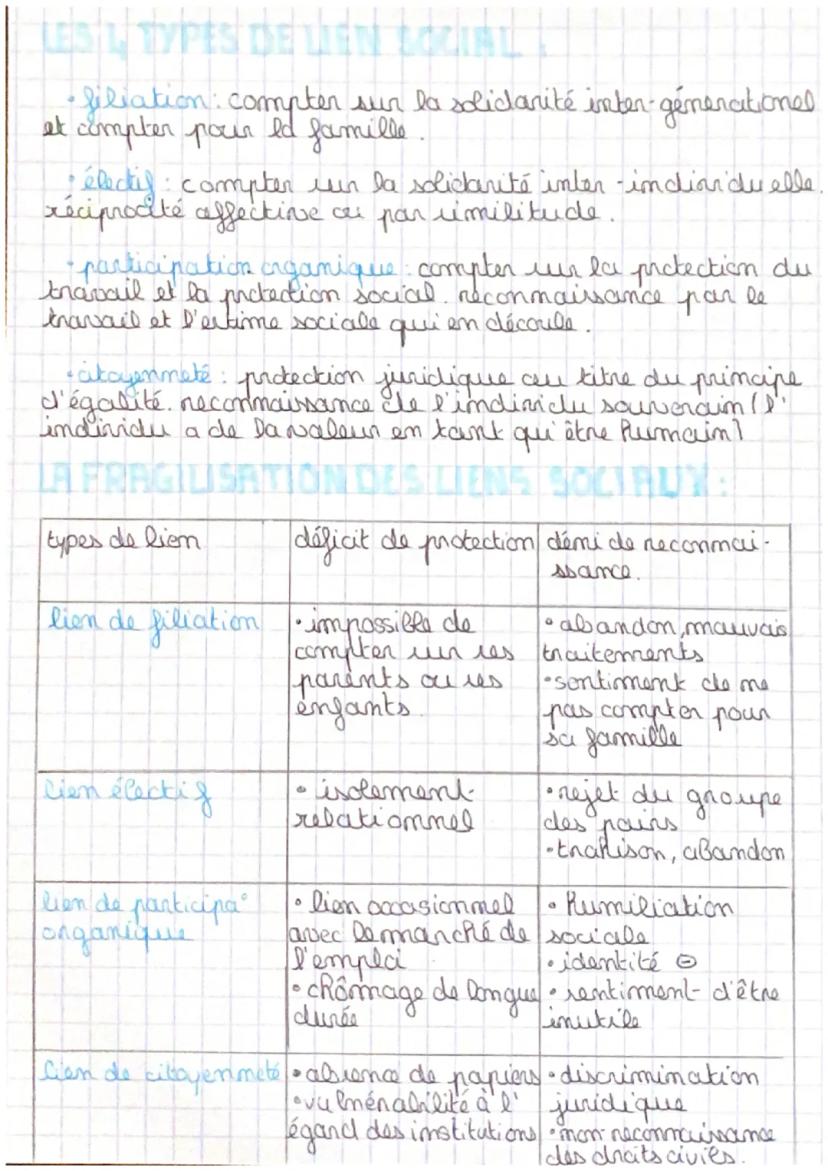 LES 4 TYPES DE LIEN SOCIAL :
• filiation : compter sur la solidarité inter-génerationel
et compter pour la famille.
• électif : compter sur la solidarité inter-individuelle.
réciprocité affective ou par similitude.
• participation organique : compter sur la protection du
travail et la protection social. reconnaissance par le
travail et l'estime sociale qui en découle.
• citoyenneté : protection juridique au titre du principe
d'égalité. reconnaissance de l'individu souverain (l'
individu a de la valeur en tant qu'être humain)
LA FRAGILISATION DES LIENS SOCIAUX :
types de lien
déficit de protection
déni de reconnai-
ssance.
lien de filiation
• impossible de
compter sur ses
parents ou ses
enfants.
• abandon, mauvais
traitements
• sentiment de ne
pas compter pour
sa famille
lien électif
• isolement
relationnel
• rejet du groupe
des pairs
• trahison, abandon
lien de participa°
organique
• lien occasionnel
avec le marché de
l'emploi
• chômage de longue
durée
• humiliation
sociale
• identité ⊖
• sentiment d'être
inutile
lien de citoyenneté
• absence de papiers
• vulnérabilité à l'
égard des institutions
• discrimination
juridique
• non reconnaissance
des droits civils.